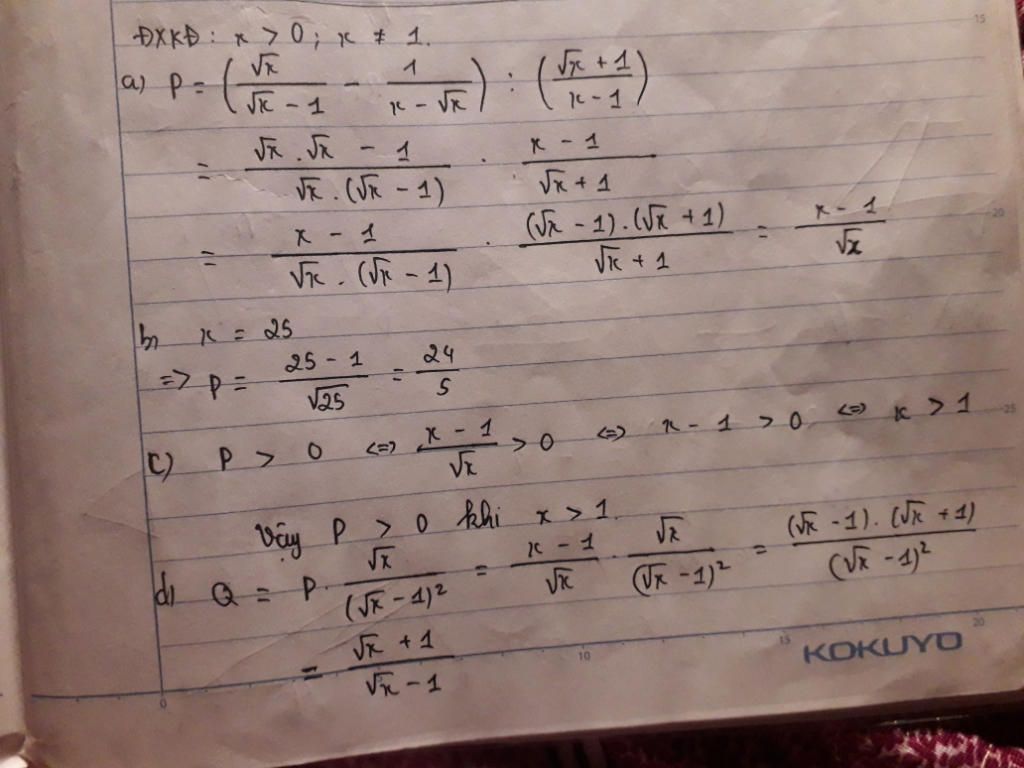 ĐXKĐ: x > 0; x ≠ 1.
a) P = (√x/(√x - 1) - 1/(x - √x)) : ((√x + 1)/(x - 1))
= (√x . √x - 1)/(√x . (√x - 1)) . (x - 1)/(√x + 1)
= (x - 1)/(√x . (√x - 1)) . ((√x - 1).(√x + 1))/(√x + 1) = (x - 1)/√x
b) x = 25
=> P = (25 - 1)/√25 = 24/5
c) P > 0 <=> (x - 1)/√x > 0 <=> x - 1 > 0 <=> x > 1
Vậy P > 0 khi x > 1.
d) Q = P . √x/(√x - 1)² = (x - 1)/√x . √x/(√x - 1)² = ((√x - 1).(√x + 1))/(√x - 1)²
= (√x + 1)/(√x - 1)
KOKUYO
0 10 15 20
15
20
25